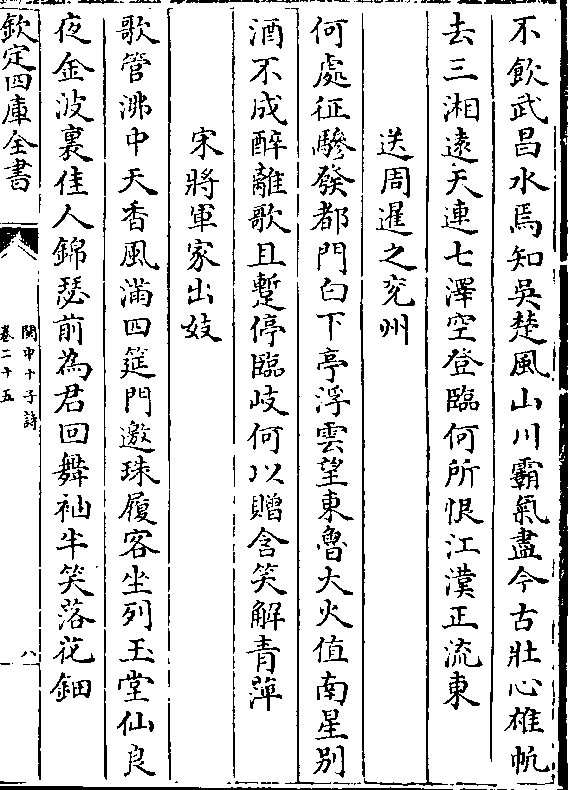 不飲武昌水焉知吳楚風山川霸氣盡今古壯心雄帆
去三湘遠天連七澤空登臨何所恨江漢正流東
送周暹之兖州
何處征驂發都門白下亭浮雲望東魯大火值南星別
酒不成醉離歌且蹔停臨岐何以贈含笑解青萍
宋將軍家出妓
歌管沸中天香風滿四筵門邀珠履客坐列玉堂仙良
夜金波裏佳人錦瑟前為君回舞袖半笑落花鈿
欽定四庫全書
閩中十子詩
卷二十五
八